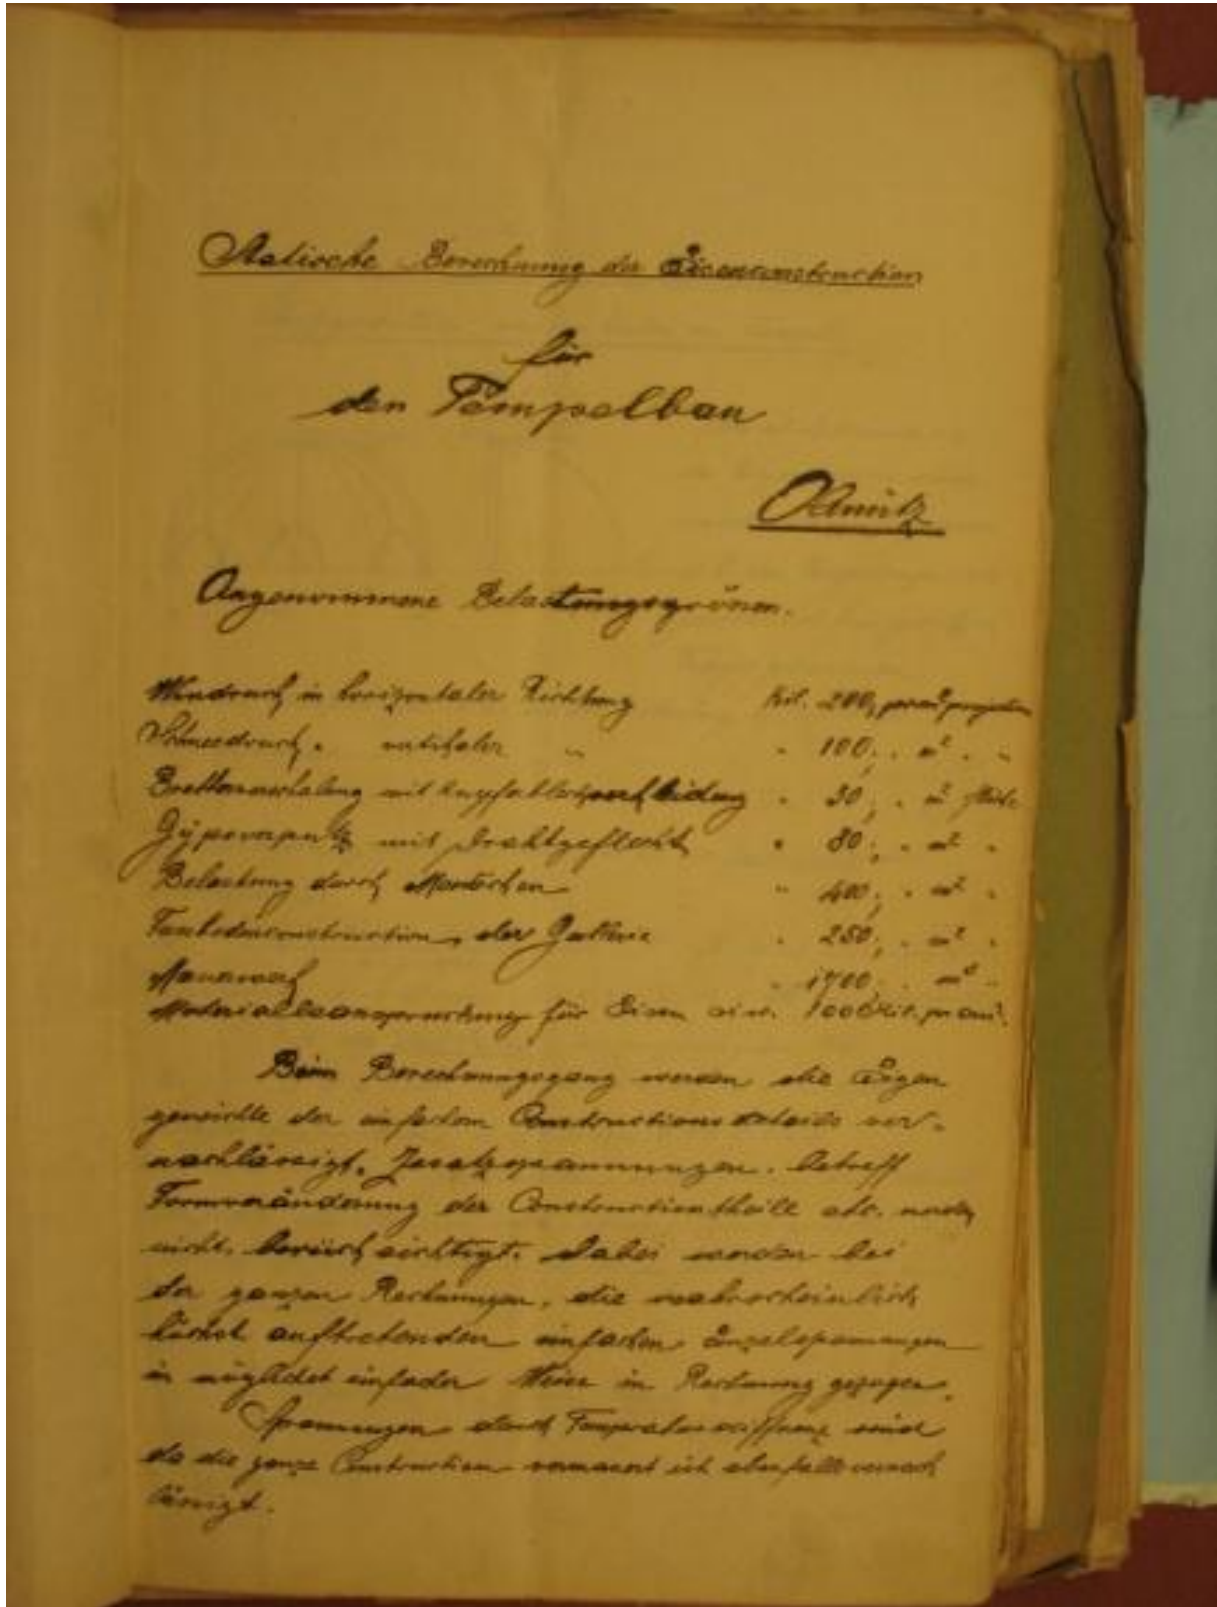 Statische Berechnung der Eisenconstruction
für
den Tempelbau
Olmütz
Angenommene Belastungsgrössen.
Winddruck in horizontaler Richtung Kil. 200,
Schneedruck " vertikaler " " 100, " m² " "
Bretterverschalung mit Kupferblechverkleidung " 30, " m²
Gypsverputz mit Drahtgeflecht " 80, " m² "
Belastung durch Menschen " 400, " m² "
der Gallerie " 250, " m² "
Mauerwerk " 1700
Materialbeanspruchung für Eisen 1000 Kil. pr cm².
Beim Berechnungsgang werden die Eigen
gewichte der einfachen Constructionsdetails ver-
nachlässigt. Zusatzspannungen, betreff
Formveränderung der Constructionstheile etc. werden
nicht berücksichtigt. Dabei werden bei
der ganzen Rechnungen, die wahrscheinlich
höchst auftretenden einfachen Einzelspannungen
in möglichst einfacher Weise in Rechnung gezogen.
Spannungen durch Temperaturdifferenz sind
da die ganze Construction vermauert ist ebenfalls vernach
lässigt.